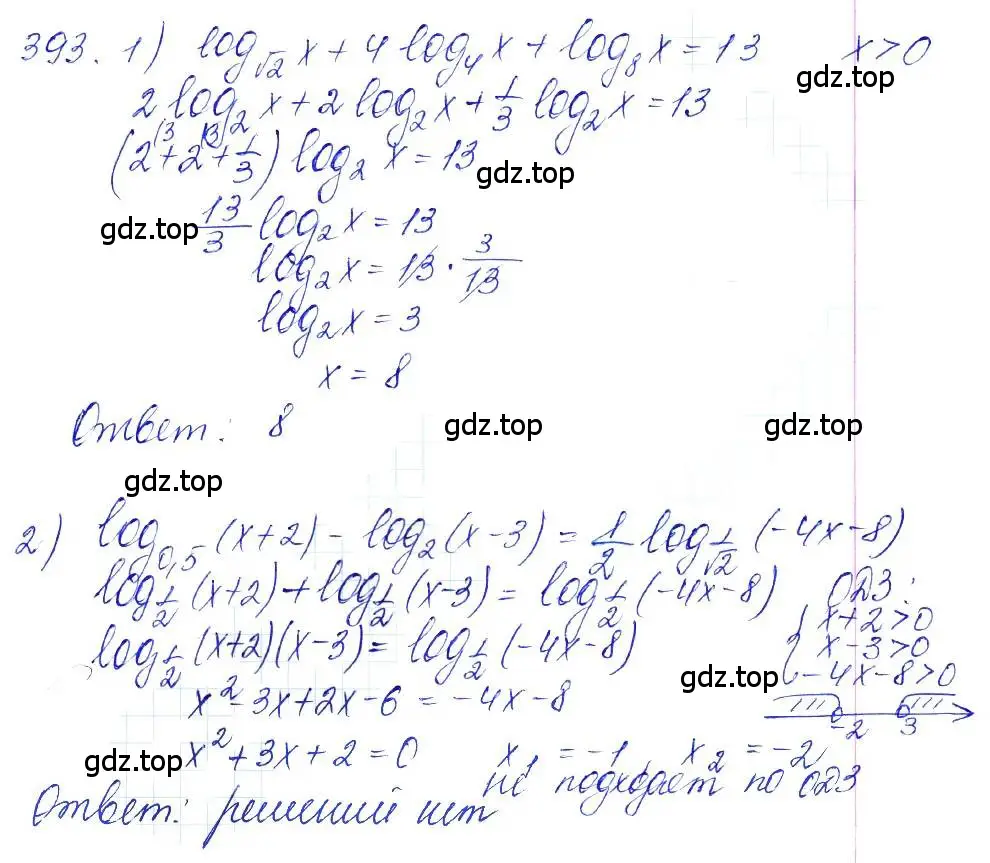 393. 1) log_√2 x + 4 log_4 x + log_8 x = 13    x > 0
gdz.top
2 log_2 x + 2 log_2 x + 1/3 log_2 x = 13
(2^(3 + 2^(3 + 1/3) log_2 x = 13
gdz.top
gdz.top 13/3 log_2 x = 13
log_2 x = 13 · 3/13
log_2 x = 3
x = 8
Ответ: 8
gdz.top gdz.top
gdz.top
2) log_0,5 (x+2) - log_2 (x-3) = 1/2 log_1/√2 (-4x-8)
log_1/2 (x+2) + log_1/2 (x-3) = log_1/2 (-4x-8)    ОДЗ:
log_1/2 (x+2)(x-3) = log_1/2 (-4x-8)    { x+2>0
x-3>0
gdz.top -4x-8>0
x² - 3x + 2x - 6 = -4x - 8
-2 3
gdz.top x² + 3x + 2 = 0    x_1 = -1, x_2 = -2
не подходят по ОДЗ
Ответ: решений нет